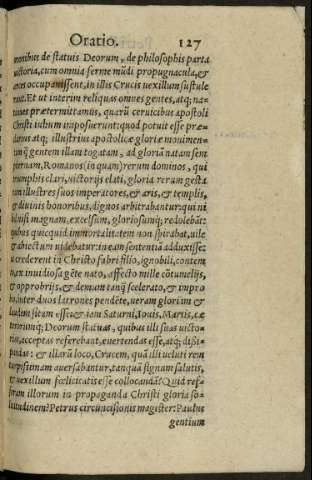 Oratio. 127
monibus de statuis Deorum, de philosophis parta
victoria, cum omnia ferme mũdi propugnacula, &
arces occupauissent, in illis Crucis uexillum sustule
runt. Et ut interim reliquas omnes gentes, atq; na-
tiones prætermittamus, quarũ ceruicibus apostoli
Christi iubum imposuerunt: quod potuit esse præ-
clarius atq; illustrius apostolicæ gloriæ monimen-
tum, q̃ gentem illam togatam, ad gloriã natam sem
piternam, Romanos (in quam) rerum dominos, qui
triumphis clari, uictorijs elati, gloria rerum gesta
rum illustres suos imperatores, & aris, & templis,
& diuinis honoribus, dignos arbitrabantur: qui ni
hil nisi magnam, excelsum, gloriosumq; redolebãt:
quibus quicquid immortalitatem non spirabat, uile
& abiectum uidebatur: in eam sententiã adduxisse:
ut crederent in Christo fabri filio, ignobili, contem
nax inuidiosa gẽte nato, affecto mille cõtumelijs,
& opprobrijs, & demum tanq̃ scelerato, & impro
bo, inter duos latrones pendẽte, ueram gloriam &
laudem sitam esse: & iam Saturni, Iouis, Martis, cæ
terorumq; Deorum statuas, quibus illi suas uicto-
rias, acceptas referebant, euertendas esse, atq; dissi-
pandas: & illarũ loco, Crucem, quã illi ueluti rem
turpissimam auersabantur, tanquã signum salutis,
& uexillum fœlicitatis esse collocandã? Quid refe
ram illorum in propaganda Christi gloria so-
licitudinem? Petrus circuncisionis magister: Paulus
gentium